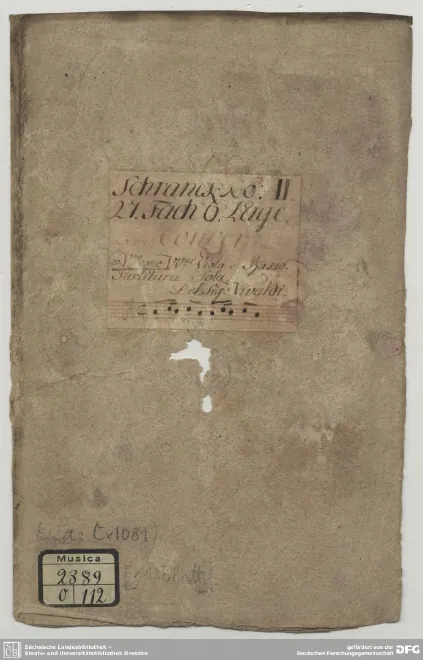 Schranck No: II.
21. Fach 6. Lage.
Concer
Viola e Basso.
Partitura Sola.
Del Sigr Vivaldi.
Cx1081)
Musica
2389
O 112
Sächsische Landesbibliothek –
Staats- und Universitätsbibliothek Dresden
gefördert von der
Deutschen Forschungsgemeinschaft
DFG